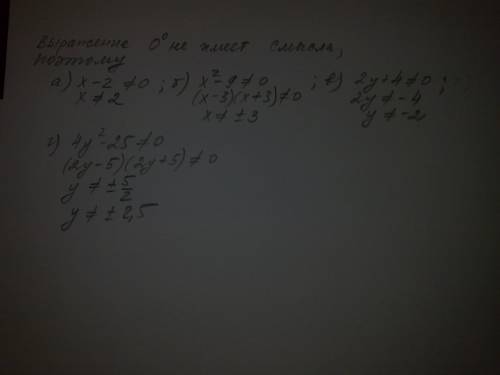 Выражение 0⁰ не имеет смысла,
поэтому
а) x-2 ≠0 ; б) x²-9≠0 ; в) 2y+4≠0 ;
x≠2 (x-3)(x+3)≠0 2y≠-4
x≠±3 y≠-2
г) 4y²-25≠0
(2y-5)(2y+5)≠0
y≠±5/2
y≠±2,5